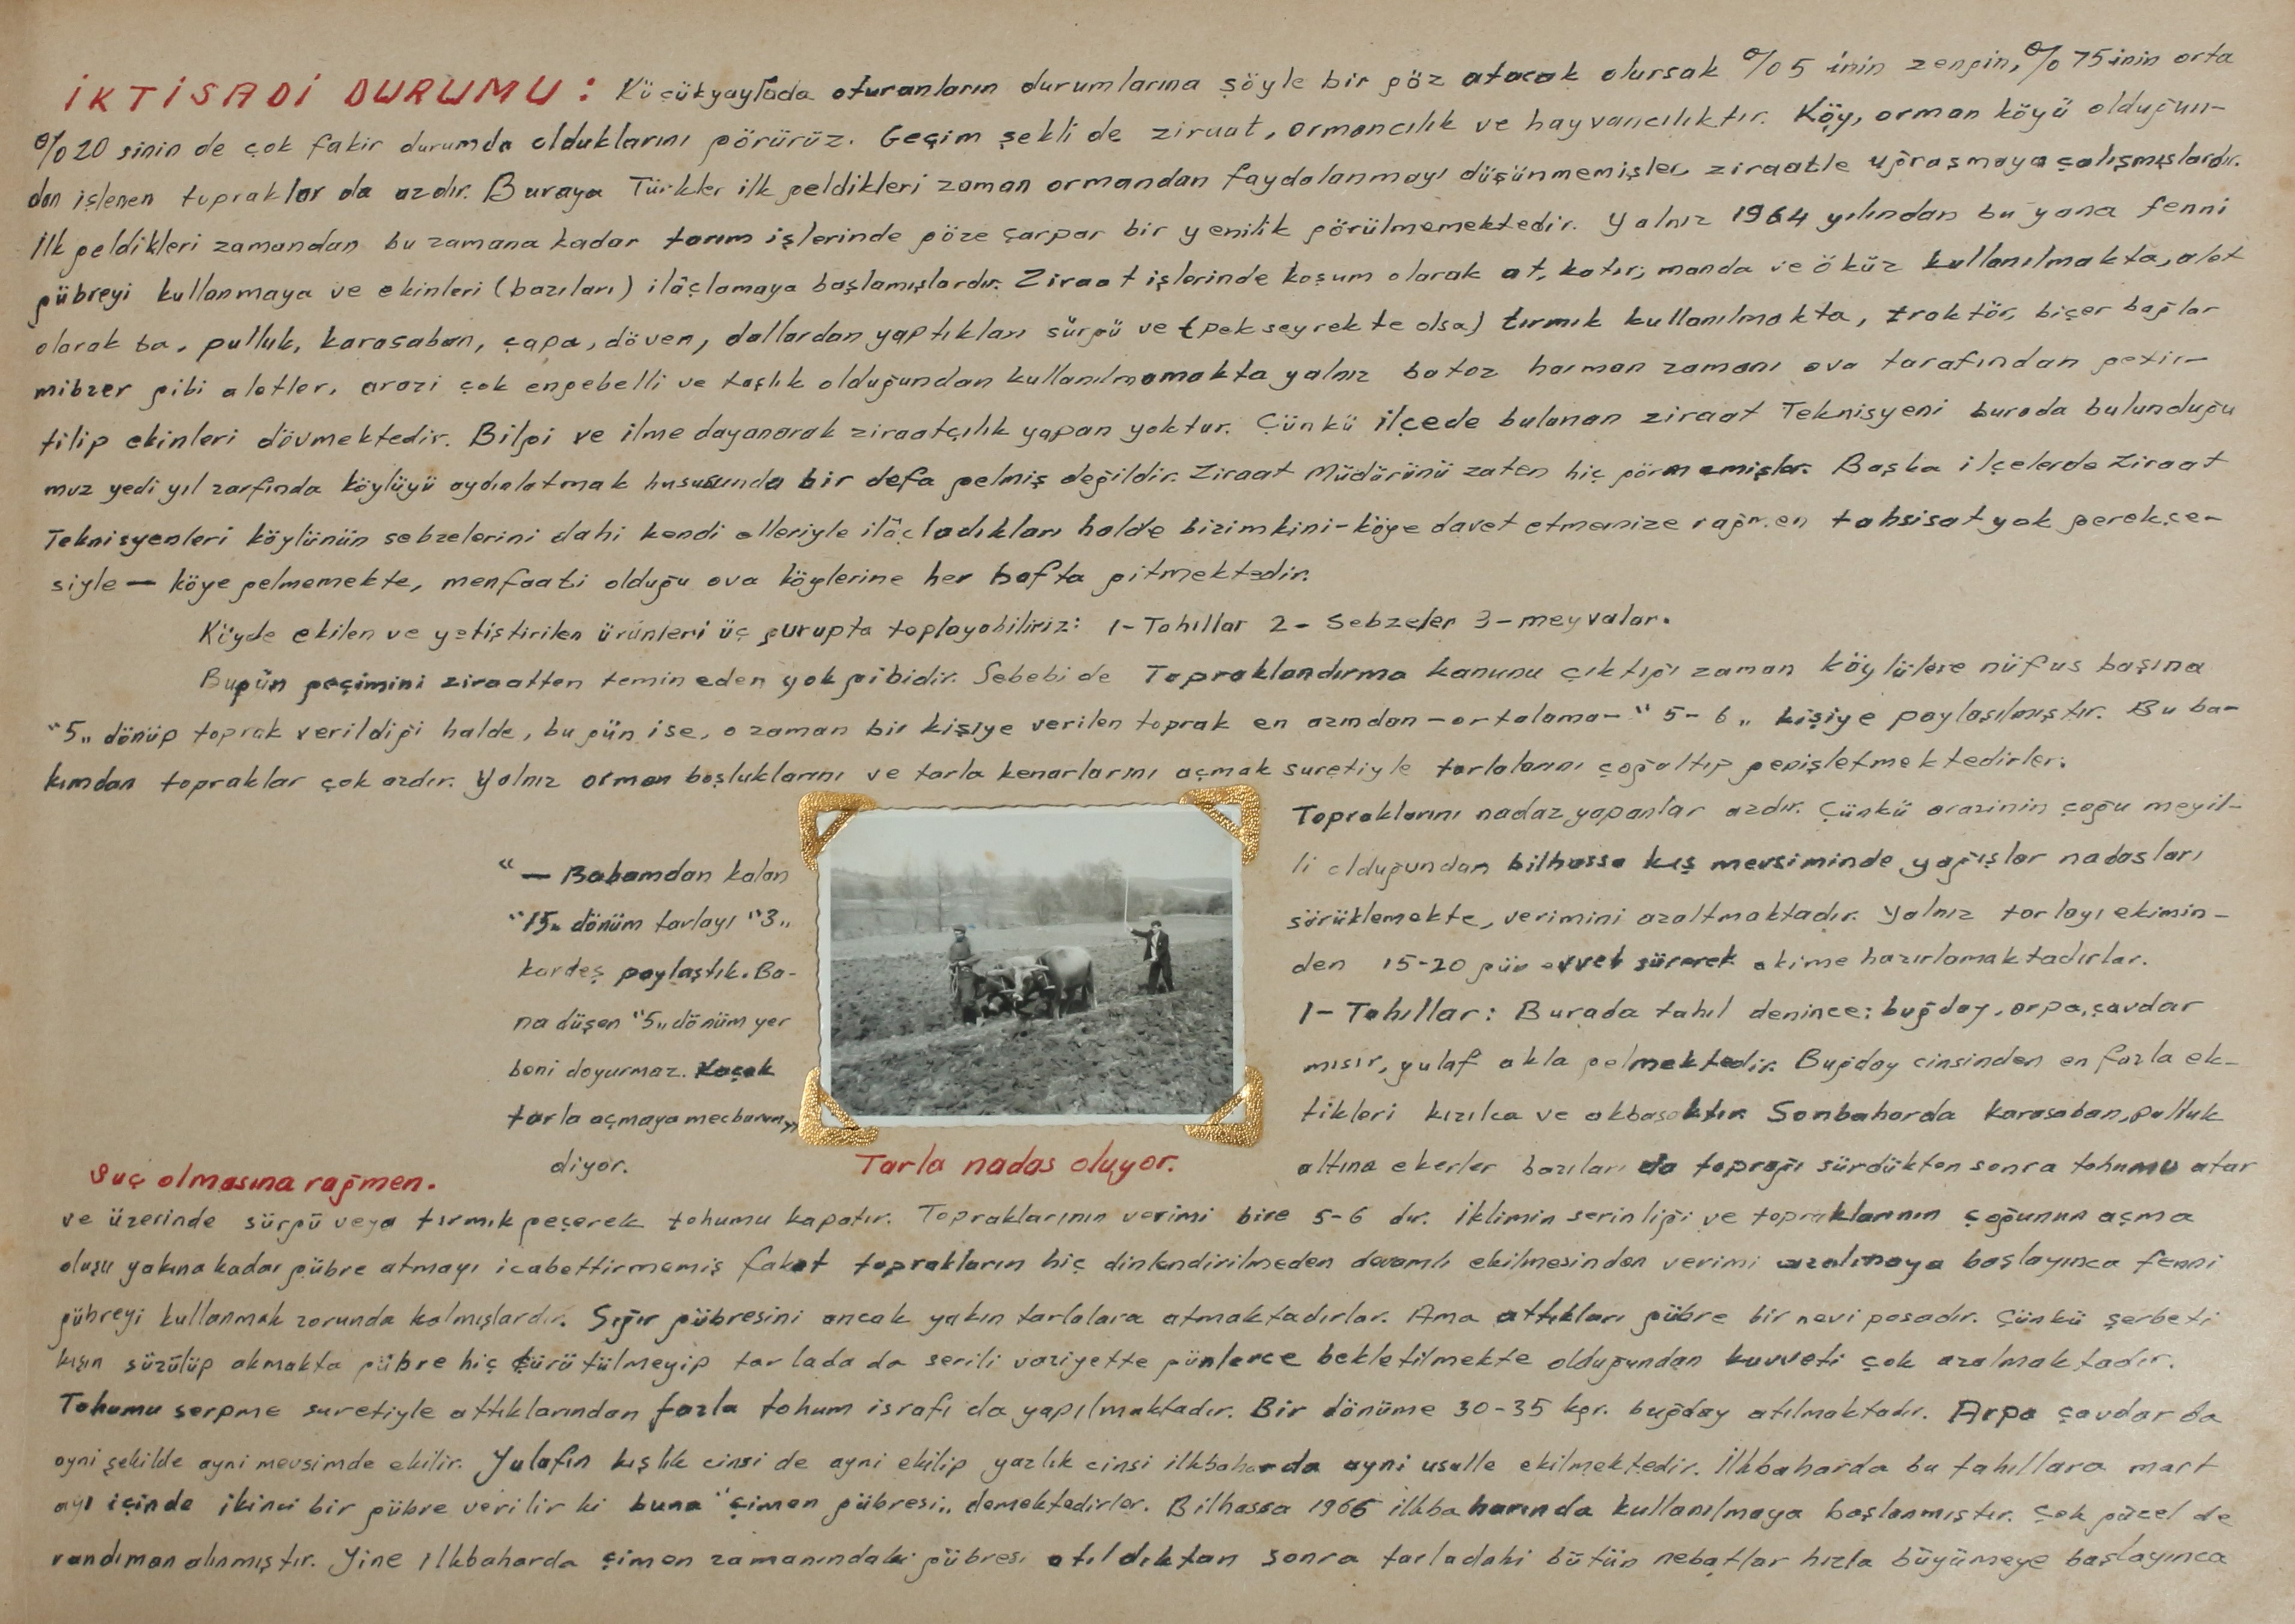 İKTİSADİ DURUMU: Küçükyaylada oturanların durumlarına şöyle bir göz atacak olursak %5 inin zengin, %75 inin orta
%20 sinin de çok fakir durumda olduklarını görürüz. Geçim şekli de ziraat, ormancılık ve hayvancılıktır. Köy, orman köyü olduğun-
dan işlenen topraklar da azdır. Buraya Türkler ilk geldikleri zaman ormandan faydalanmayı düşünmemişler, ziraatle uğraşmaya çalışmışlardır.
İlk geldikleri zamandan bu zamana kadar tarım işlerinde göze çarpar bir yenilik görülmemektedir. Yalnız 1964 yılından bu yana fenni
gübreyi kullanmaya ve ekinleri (bazıları) ilâçlamaya başlamışlardır. Ziraat işlerinde koşum olarak at, katır, manda ve öküz kullanılmakta, alet
olarak ta, pulluk, karasaban, çapa, döven, dallardan yaptıkları sürgü ve (pek seyrek te olsa) tırmık kullanılmakta, traktör, biçer bağlar
mibzer gibi aletler, arazi çok engebelli ve taşlık olduğundan kullanılmamakta yalnız batoz harman zamanı ova tarafından getir-
tilip ekinleri dövmektedir. Bilgi ve ilme dayanarak ziraatçılık yapan yoktur. Çünkü ilçede bulunan ziraat Teknisyeni burada bulunduğu
muz yedi yıl zarfında köylüyü aydınlatmak hususunda bir defa gelmiş değildir. Ziraat Müdürünü zaten hiç görmemişler. Başka ilçelerde Ziraat
Teknisyenleri köylünün sebzelerini dahi kendi elleriyle ilâçladıkları halde bizimkini-köye davet etmemize rağmen tahsisat yok gerekçe-
siyle — köye gelmemekte, menfaati olduğu ova köylerine her hafta gitmektedir.
Köyde ekilen ve yetiştirilen ürünleri üç gurupta toplayabiliriz: 1- Tahıllar 2- Sebzeler 3- meyvalar.
Bugün geçimini ziraatten temin eden yok gibidir. Sebebi de Topraklandırma kanunu çıktığı zaman köylülere nüfus başına
"5" dönüp toprak verildiği halde, bu gün ise, o zaman bir kişiye verilen toprak en azından -ortalama- "5-6" kişiye paylaşılmıştır. Bu ba-
kımdan topraklar çok azdır. Yalnız orman boşluklarını ve tarla kenarlarını açmak suretiyle tarlalarını çoğaltıp genişletmektedirler.
"— Babamdan kalan
"15" dönüm tarlayı "3"
kardeş paylaştık. Ba-
na düşen "5" dönüm yer
beni doyurmaz. Kaçak
tarla açmaya mecburum"
diyor.
Suç olmasına rağmen.
Tarla nadas oluyor.
Topraklarını nadaz yapanlar azdır. Çünkü arazinin çoğu meyil-
li olduğundan bilhassa kış mevsiminde yağışlar nadasları
sürüklemekte, verimini azaltmaktadır. Yalnız tarlayı ekimin-
den 15-20 gün evvel sürerek ekime hazırlamaktadırlar.
1- Tahıllar: Burada tahıl denince: buğday, arpa, çavdar
mısır, yulaf akla gelmektedir. Buğday cinsinden en fazla ek-
tikleri kızılca ve akbaşaktır. Sonbaharda karasaban, pulluk
altına ekerler bazıları da toprağı sürdükten sonra tohumu atar
ve üzerinde sürgü veya tırmık geçerek tohumu kapatır. Topraklarının verimi bire 5-6 dır. İklimin serinliği ve topraklarının çoğunun açma
oluşu yakına kadar gübre atmayı icabettirmemiş fakat toprakların hiç dinlendirilmeden devamlı ekilmesinden verimi azalmaya başlayınca fenni
gübreyi kullanmak zorunda kalmışlardır. Sığır gübresini ancak yakın tarlalara atmaktadırlar. Ama attıkları gübre bir nevi posadır. Çünkü şerbeti
kışın süzülüp akmakta gübre hiç çürütülmeyip tarlada da serili vaziyette günlerce bekletilmekte olduğundan kuvveti çok azalmaktadır.
Tohumu serpme suretiyle attıklarından fazla tohum israfı da yapılmaktadır. Bir dönüme 30-35 kgr. buğday atılmaktadır. Arpa çavdar da
ayni şekilde ayni mevsimde ekilir. Yulafın kışlık cinsi de ayni ekilip yazlık cinsi ilkbaharda ayni usulle ekilmektedir. İlkbaharda bu tahıllara mart
ayı içinde ikinci bir gübre verilir ki buna "çimen gübresi" demektedirler. Bilhassa 1966 ilkbaharında kullanılmaya başlanmıştır. Çok güzel de
randıman alınmıştır. Yine ilkbaharda çimen zamanındaki gübresi atıldıktan sonra tarladaki bütün nebatlar hızla büyümeye başlayınca